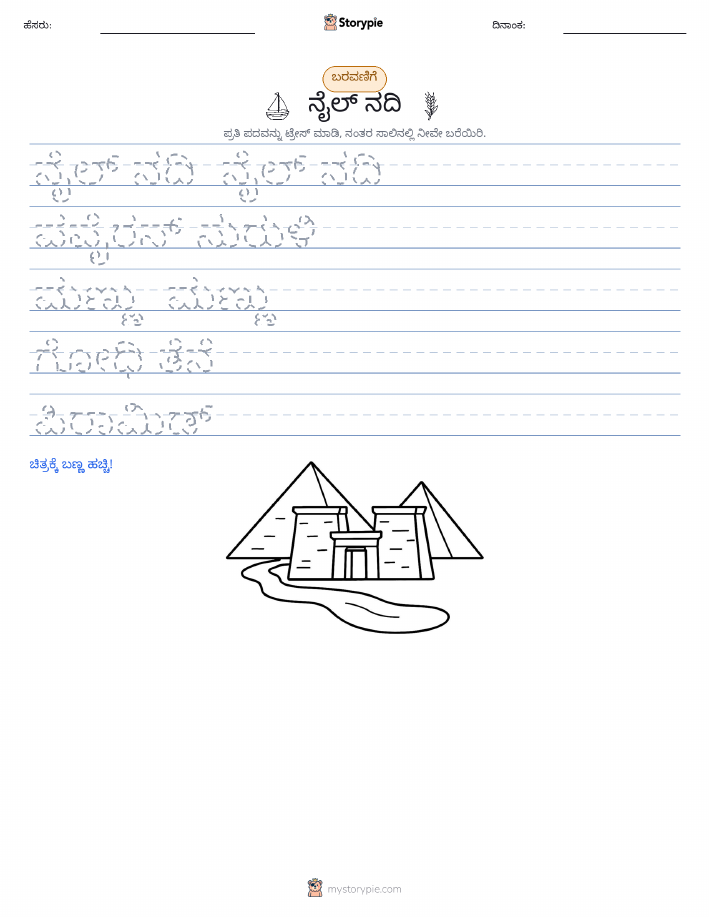 ಹೆಸರು:
Storypie
ದಿನಾಂಕ:
ಬರವಣಿಗೆ
ನೈಲ್ ನದಿ
ಪ್ರತಿ ಪದವನ್ನು ಟ್ರೇಸ್ ಮಾಡಿ, ನಂತರ ಸಾಲಿನಲ್ಲಿ ನೀವೇ ಬರೆಯಿರಿ.
ನೈಲ್ ನದಿ ನೈಲ್ ನದಿ
ಮರುಳಿ
ಗೋಧಿ ತೆನೆ
ಪಿರಾಮಿಡ್
ಚಿತ್ರಕ್ಕೆ ಬಣ್ಣ ಹಚ್ಚಿ!
mystorypie.com